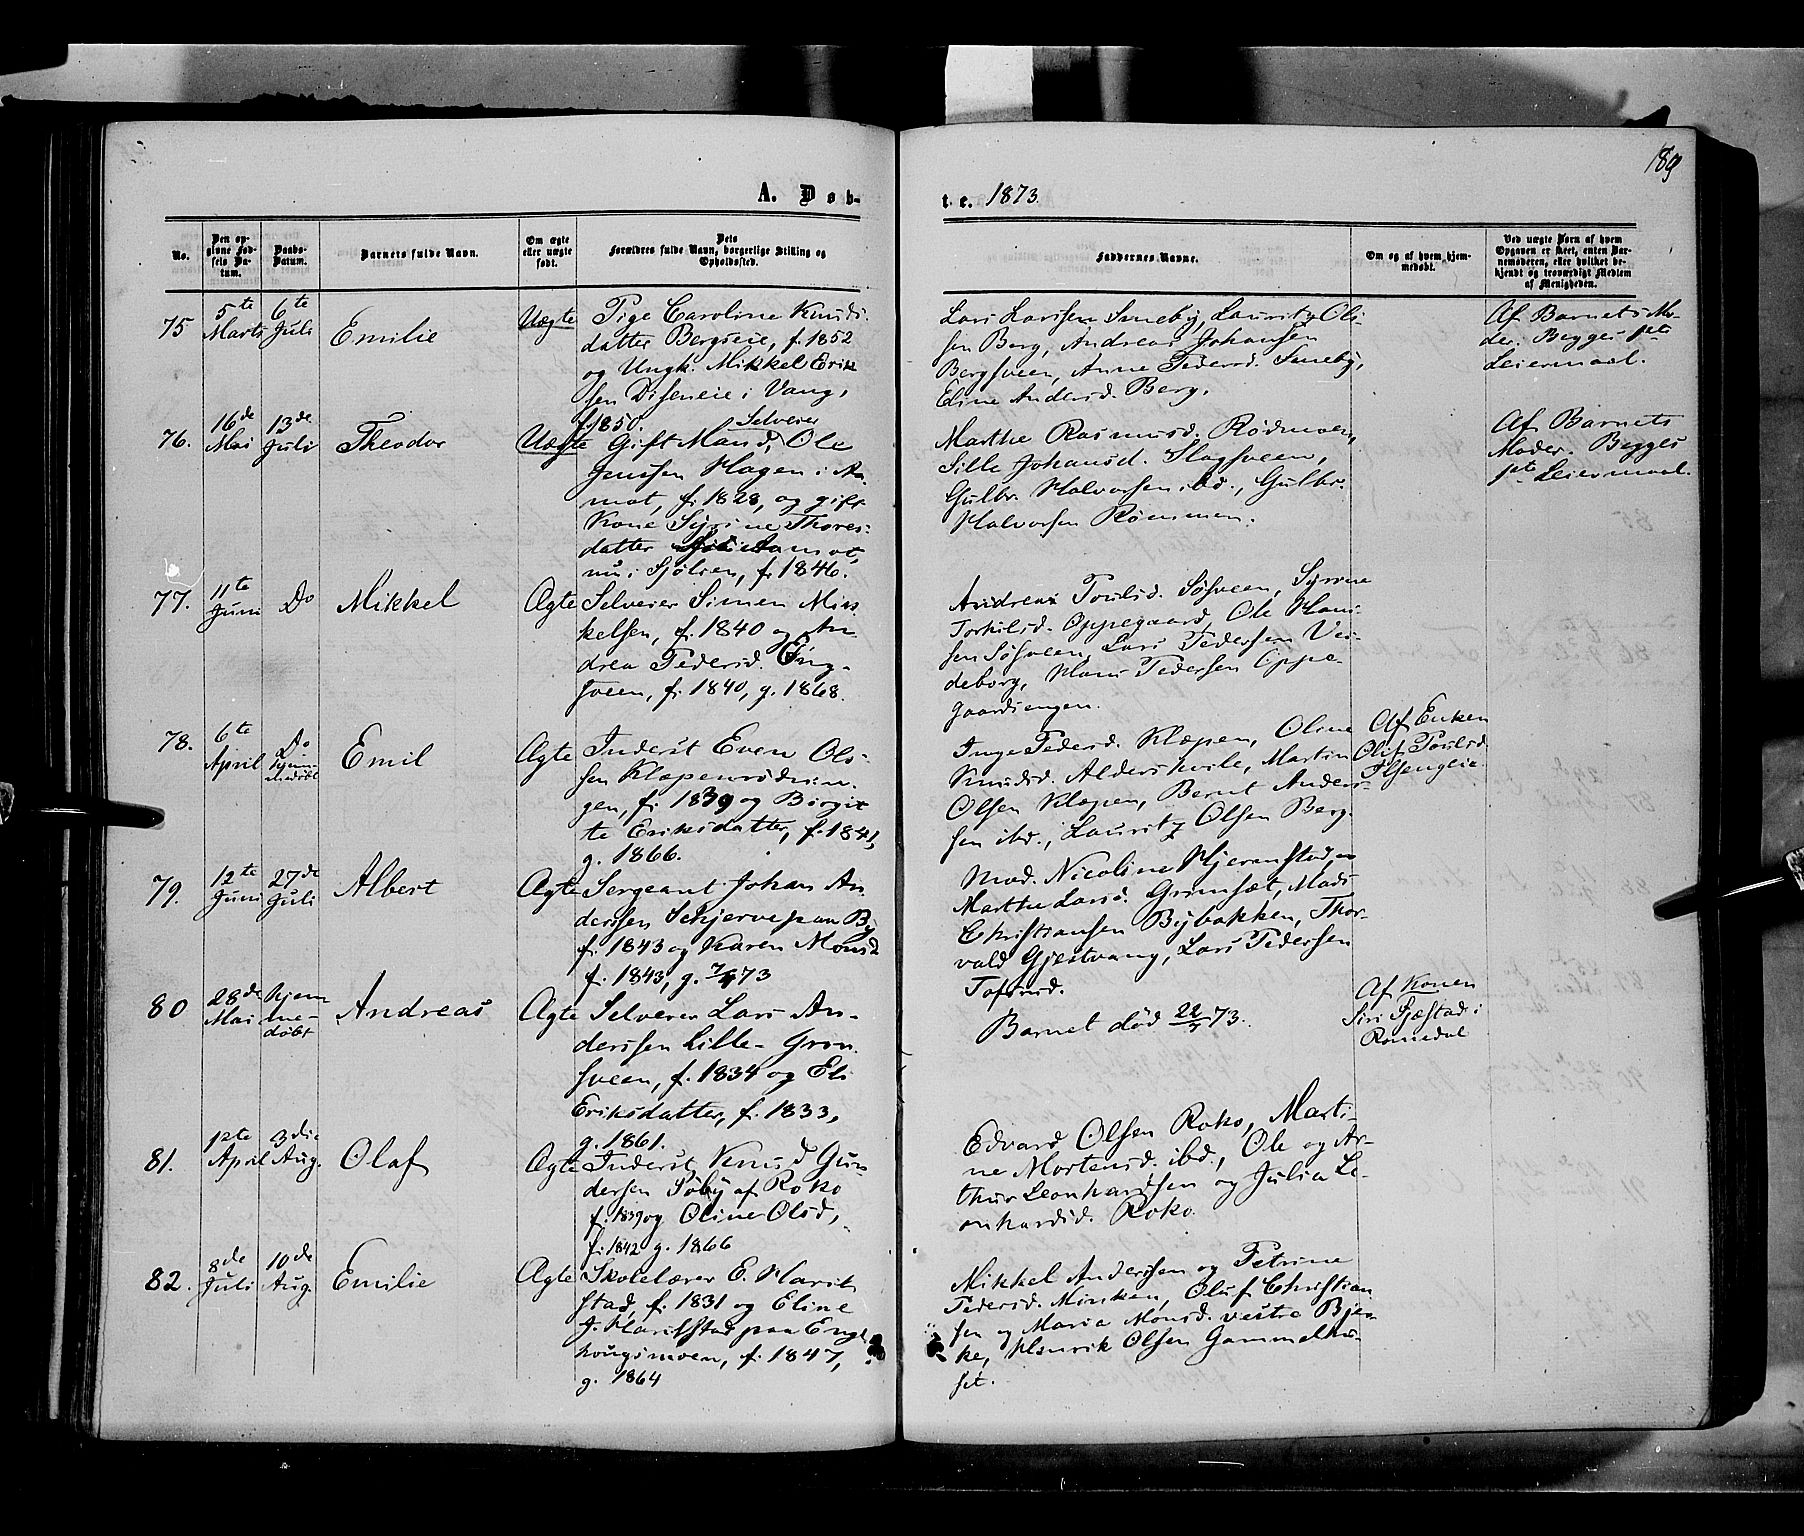 189
A. Døb-
te. 1873.
No.
Den op-
givne Fød-
sels Da-
tum.
Daabs-
Datum.
Barnets fulde Navn.
Om ægte
eller uægte
født.
Dets
Forældres fulde Navn, borgerlige Stilling og
Opholdssted.
Faddernes Navne.
Om og af hvem hjem-
medøbt.
Ved uægte Børn af hvem
Opgaven er skeet, enten Bar-
nemoderen, eller hvilket be-
kjendt og troværdigt Medlem
af Menigheden.
75
5te
Marts
6te
Juli
Emilie
Uægte
Pige Caroline Knuds-
datter Bergseie, f. 1852
og Ungk. Mikkel Erik
sen Diseneie i Vang,
f. 1850.
Lars Larssen Sæneby, Lauritz Ol-
sen Berg, Andreas Johansen
Bergsveen, Anne Pedersd. Sæneby,
Eline Andersd. Berg.
Af Barnets Mo-
der. Begges 1ste
Leiermaal.
76.
16de
Mai
13de
Juli
Theodor
Uægte
Selveier
Gift Mand, Ole
Jenssen Hagen i Aa-
mot, f. 1828, og gift
Kone Syrine Thores-
datter Aamot,
nu i Sjølien, f. 1846.
Marthe Rasmusd. Rødmoen,
Sille Johansd. Slagsveen,
Gulbr. Halvorsen ibd., Gulbr.
Halvorsen Rømmen.
Af Barnets
Moder. Begges
1ste Leiermaal.
77.
11te
Juni
Do
Mikkel
Ægte
Selveier Simen Mik
kelsen, f. 1840 og An
drea Pedersd. Eng-
sveen, f. 1840, g. 1868.
Andrea Poulsd. Søsveen, Syrine
Torkilsd. Oppegaard, Ole Hans
sen Søsveen, Lars Pederssen Ve-
deborg, Hans Pedersen Oppe-
gaardsengen.
78.
6te
April
Do
Hjem-
medøbt
Emil
Ægte
Inderst Even Ol-
sen Klæpensrødnin
gen, f. 1839 og Birgit
te Eriksdatter, f. 1841,
g. 1866.
Inge Pedersd. Klæpen, Oline
Knudsd. Aldershvile, Martin
Olsen Klæpen, Bernt Anders-
sen ibd., Lauritz Olsen Berg.
Af Enken
Olif Poulsd.
Ilsengeie.
79.
12te
Juni
27de
Juli
Albert
Ægte
Sergeant Johan An
derssen Schjerve paa By
f. 1843 og Karen Monsd
f. 1843, g. 7/4 73
Mad. Nicoline Hjeranstad,
Marthe Larsd. Grimsæt, Mads
Christiansen Bybakken, Thor-
vald Gjestvang, Lars Pederssen
Tofsrud.
80
28de
Mai
hjem
me-
døbt
Andreas
Ægte
Selveier Lars An-
derssen Lille-Grøn
sveen, f. 1834 og Eli
Eriksdatter, f. 1833,
g. 1861.
Barnet død 22/7 73.
Af Konen
Siri Sjæstad i
Romedal
81.
1ste
April
3die
Aug.
Olaf
Ægte
Inderst Knud Gun
dersen Søby af Roko
f. 1839 og Oline Olsd,
f. 1842 g. 1866
Edvard Olsen Roko, Marti-
ne Mortensd. ibd., Ole og Ar-
thur Leonhardsen og Julia Le-
onhardsd. Roko
82.
8de
Juli
10de
Aug.
Emilie
Ægte
Skolelærer E. Harild
stad, f. 1831 og Eline
J. Harildstad paa Enge-
hougsmoen, f. 1847,
g. 1864
Mikkel Anderssen og Petrine
Pedersd. Minken, Oluf Christian
sen og Maria Monsd. vestre Bjer-
ke, Henrik Olsen Gammelhu-
set.